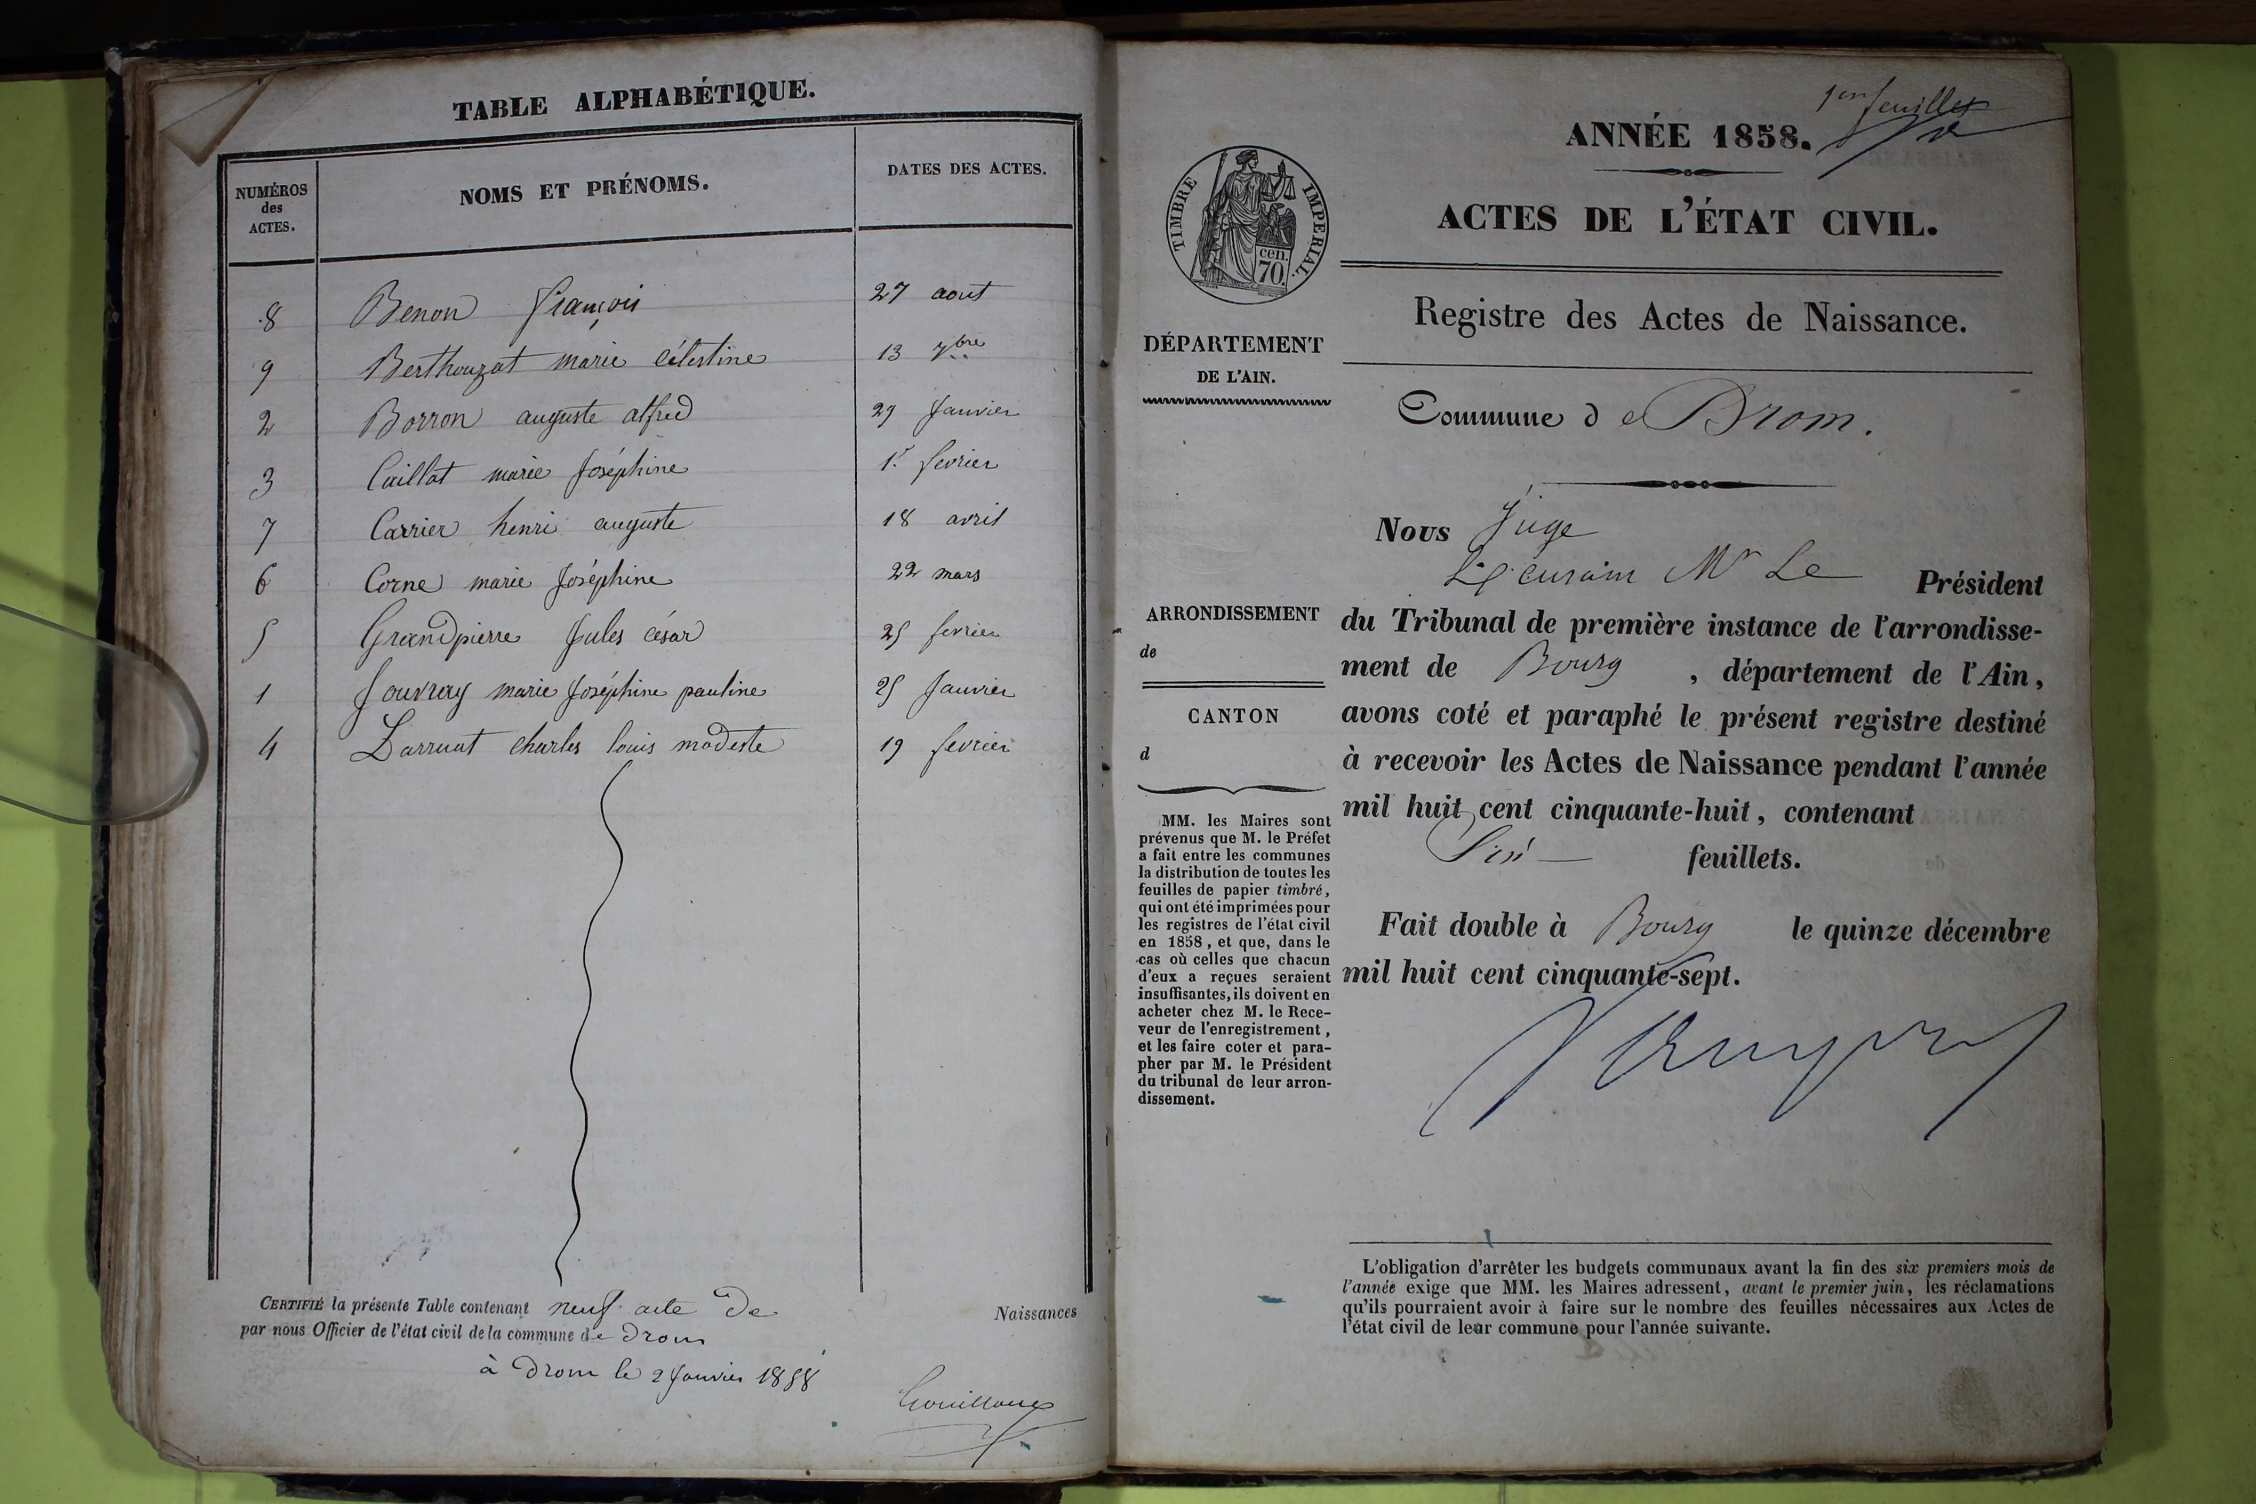 TABLE ALPHABÉTIQUE.
NUMÉROS des ACTES. NOMS ET PRÉNOMS. DATES DES ACTES.
8 Benon françois 27 aout
9 Berthouzat marie célestine 13 7bre
2 Borron auguste alfred 29 Janvier
3 Caillat marie Joséphine 1r fevrier
7 Carrier henri auguste 18 avril
6 Corne marie Joséphine 22 mars
5 Grandpierre Jules césar 25 fevrier
1 Jouvray marie Joséphine pauline 25 Janvier
4 Larruat charles louis modeste 19 fevrier
CERTIFIÉ la présente Table contenant neuf acte de Naissances
par nous Officier de l'état civil de la commune de drom
à Drom le 2 Janvier 1858
1er feuillet
ANNÉE 1858.
ACTES DE L'ÉTAT CIVIL.
TIMBRE IMPERIAL.
cen.
70.
Registre des Actes de Naissance.
DÉPARTEMENT
DE L'AIN.
Commune de Drom.
Nous Juge
Mr Le Président
ARRONDISSEMENT
de
CANTON
d
du Tribunal de première instance de l'arrondisse-
ment de Bourg, département de l'Ain,
avons coté et paraphé le présent registre destiné
à recevoir les Actes de Naissance pendant l'année
mil huit cent cinquante-huit, contenant
Six feuillets.
Fait double à Bourg le quinze décembre
mil huit cent cinquante-sept.
MM. les Maires sont
prévenus que M. le Préfet
a fait entre les communes
la distribution de toutes les
feuilles de papier timbré,
qui ont été imprimées pour
les registres de l'état civil
en 1858, et que, dans le
cas où celles que chacun
d'eux a reçues seraient
insuffisantes, ils doivent en
acheter chez M. le Rece-
veur de l'enregistrement,
et les faire coter et para-
pher par M. le Président
du tribunal de leur arron-
dissement.
L'obligation d'arrêter les budgets communaux avant la fin des six premiers mois de
l'année exige que MM. les Maires adressent, avant le premier juin, les réclamations
qu'ils pourraient avoir à faire sur le nombre des feuilles nécessaires aux Actes de
l'état civil de leur commune pour l'année suivante.